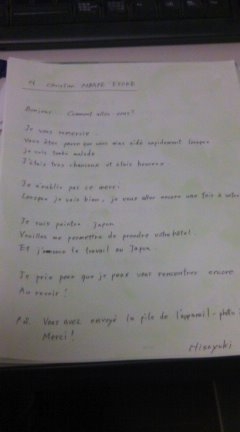 M Christian
Bonjour. Comment allez vous?
Je vous remercie
Vous êtes parce que vous m'as aidé rapidement lorsque
Je suis tombé malade
J'étais très chanceux et étais heureux.
Je n'oublie pas ce merci.
Lorsque je vais bien, je vous aller encore une fois à votre
Je suis peintre Japon
Veuillez me permettre de prendre votre hôtel.
Et j' le travail au Japon.
Je prie pour que je peux vous rencontrer encore
Au revoir!
P.S. Vous avez envoyé la pile de l'appareil-photo
Merci!
Hisayuki